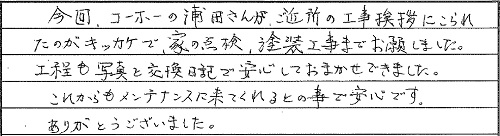 今回、コーホーの浦田さんが、ご近所の工事挨拶にこられ
たのがキッカケで、家の点検，塗装工事までお願しました。
工程も写真と交換日記で安心しておまかせできました。
これからもメンテナンスに来てくれるとの事で安心です。
ありがとうございました。